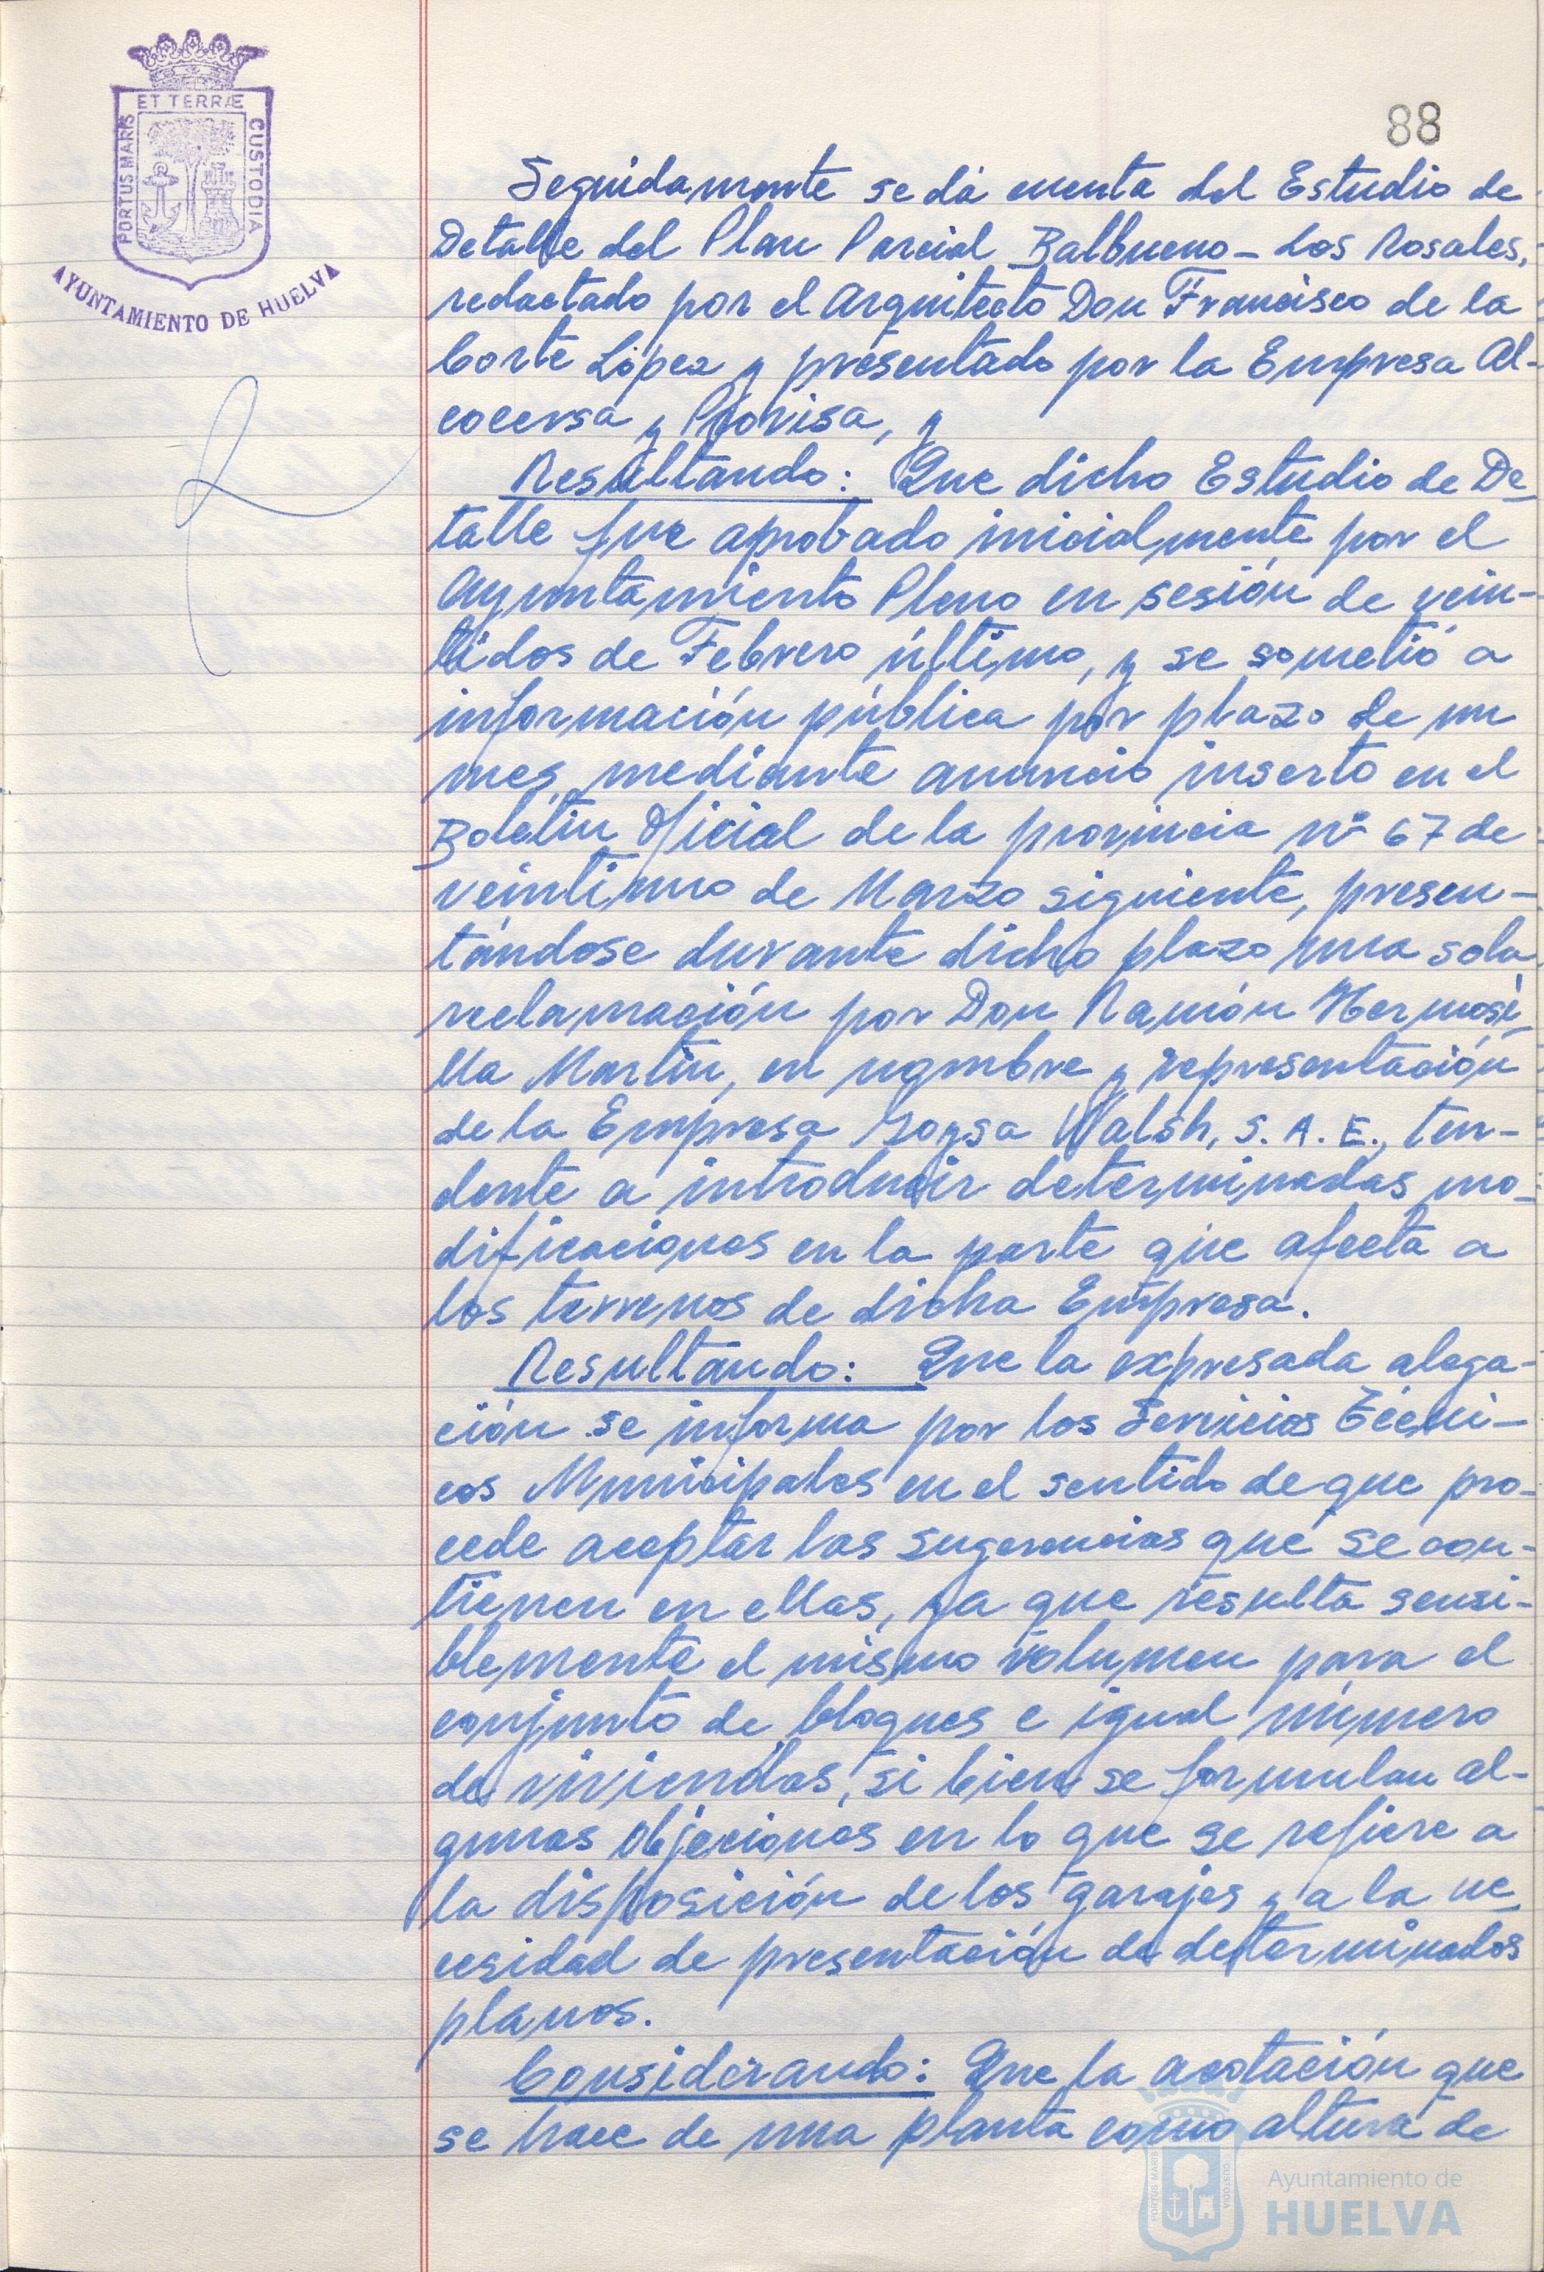 ET TERRÆ
PORTUS MARIS
CUSTODIA
AYUNTAMIENTO DE HUELVA
88
Seguidamente se dá cuenta del Estudio de
Detalle del Plan Parcial Balbueno - Los Rosales,
redactado por el Arquitecto Don Francisco de la
Corte López y presentado por la Empresa Al-
cocersa y Provisa, y
Resultando: Que dicho Estudio de De-
talle fue aprobado inicialmente por el
Ayuntamiento Pleno en sesión de vein-
tidos de Febrero último, y se sometió a
información pública por plazo de un
mes, mediante anuncio inserto en el
Boletín Oficial de la provincia nº 67 de
veintiuno de Marzo siguiente, presen-
tándose durante dicho plazo una sola
reclamación por Don Ramón Hermosi-
lla Martín, en nombre y representación
de la Empresa Goysa Walsh, S.A.E., ten-
dente a introducir determinadas mo-
dificaciones en la parte que afecta a
los terrenos de dicha Empresa.
Resultando: Que la expresada alega-
ción se informa por los Servicios Técni-
cos Municipales en el sentido de que pro-
cede aceptar las sugerencias que se con-
tienen en ellas, ya que resulta sensi-
blemente el mismo volumen para el
conjunto de bloques e igual número
de viviendas, si bien se formulan al-
gunas objeciones en lo que se refiere a
la disposición de los garajes y a la ne-
cesidad de presentación de determinados
planos.
Considerando: Que la acotación que
se hace de una planta como altura de
Ayuntamiento de
HUELVA